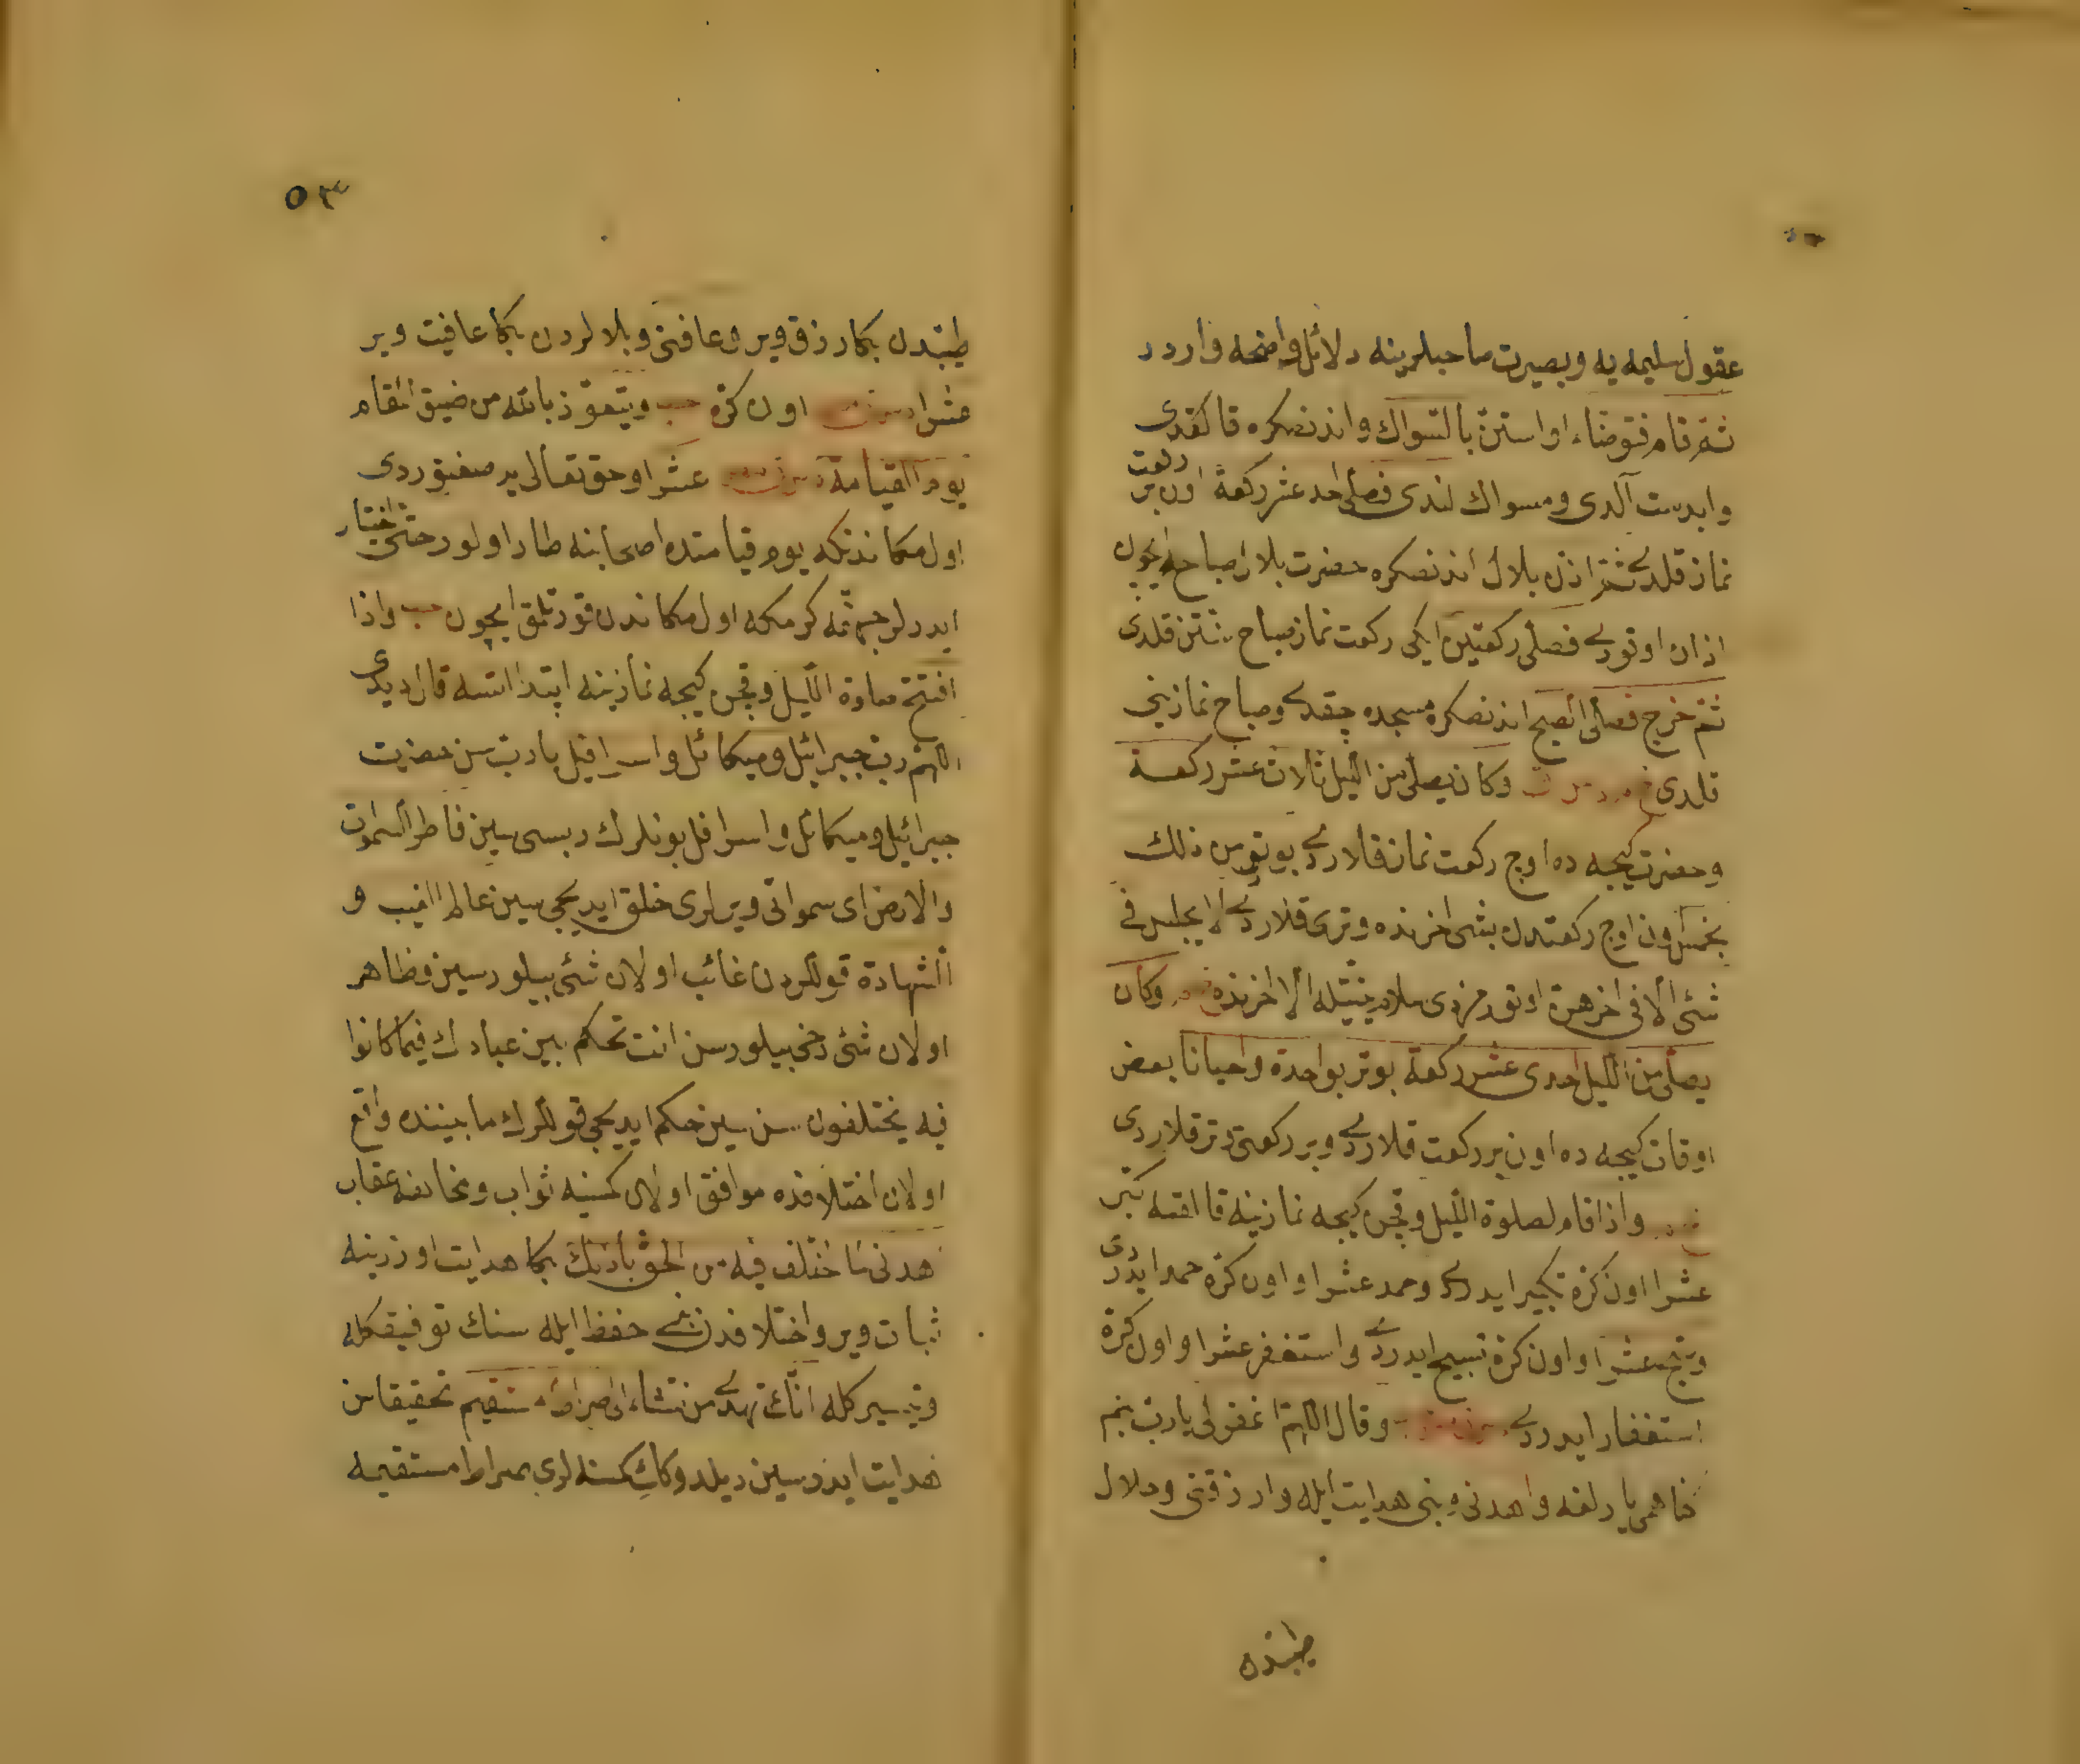 عقول سليمه يه وبصيرت صاحبلرينه دلائل واضحه وارددر
ثم قام فتوضاء او استن بالسواك واندنصكره قالقدى
وابدست آلدى ومسواك لندى فصلى احد عشر ركعة اون بر ركعت
نماز قلدى ثم اذن بلال اندنصكره حضرت بلال صباح ايچون
اذان اوقودى فصلى ركعتين ايكى ركعت نماز صباح سنتن قلدى
ثم خرج فصلى الصبح اندنصكره مسجده چقدى وصباح نمازينى
قلدى وكان يصلى من الليل ثلاث عشر ركعة
وحضرت كيجه ده اوچ ركعت نماز قلاردى يوتر من ذلك
بخمس اون اوچ ركعتدن بشى اخرنده وترى قلاردى لا يجلس فى
شئ الا فى اخرهن اوتورمزدى سلام نيتيله الا اخرنده وكان
يصلى من الليل احدى عشر ركعة يوتر بواحدة واحيانا بعض
اوقات كيجه ده اون بر ركعت قلاردى وبر ركعتى وتر قلاردى
واذا قام لصلوة الليل وقچن كيجه نمازينه قالقسه كبر
عشرا اون كره تكبير ايدردى وحمد عشرا واون كره حمد ايدردى
وسبح عشرا واون كره تسبيح ايدردى واستغفر عشرا واون كره
استغفار ايدردى وقال اللهم اغفرلى يارب بنم
كناهمى يارلغه واهدنى وبنى هدايت ايله وارزقنى وحلال
طيبندن
٥٣
طيبندن بكا رزق وير وعافنى وبلالردن بكا عافيت وير
عشرا اون كره ويتعوذ بالله من ضيق المقام
يوم القيامة عشرا وحق تعالى يه صغنوردى
اول مكاندنكه يوم قيامتده اصحابنه طار اولور حتى اختيار
ايدرلر جهنمه كرمكه اول مكاندن قورتلمق ايچون واذا
افتتح صلوة الليل وقچن كيجه نمازينه ابتدا اتسه قال ديدى
اللهم رب جبرائيل وميكائل واسرافيل يارب سن حضرت
جبرائيل وميكائل واسرافل بونلرك ربسى سين فاطر السموات
والارض اى سمواتى ويرلرى خلق ايديجى سين عالم الغيب و
الشهادة قوللردن غائب اولان شئ بيلورسين وظاهر
اولان شئ دخى بيلورسن انت تحكم بين عبادك فيما كانوا
فيه يختلفون سن سين حكم ايديجى قوللرك مابيننده واقع
اولان اختلافده موافق اولان كمسنه ثواب ومخالفه عقاب
اهدنى لما اختلف فيه من الحق باذنك بكا هدايت اوزرينه
ثبات وير واختلافدن بنى حفظ ايله سنك توفيقكله
وتيسيركله انك تهدى من تشاء الى صراط مستقيم تحقيقا سن
هدايت ايدرسين ديلدوكك كمسنه لرى صراط مستقيمه